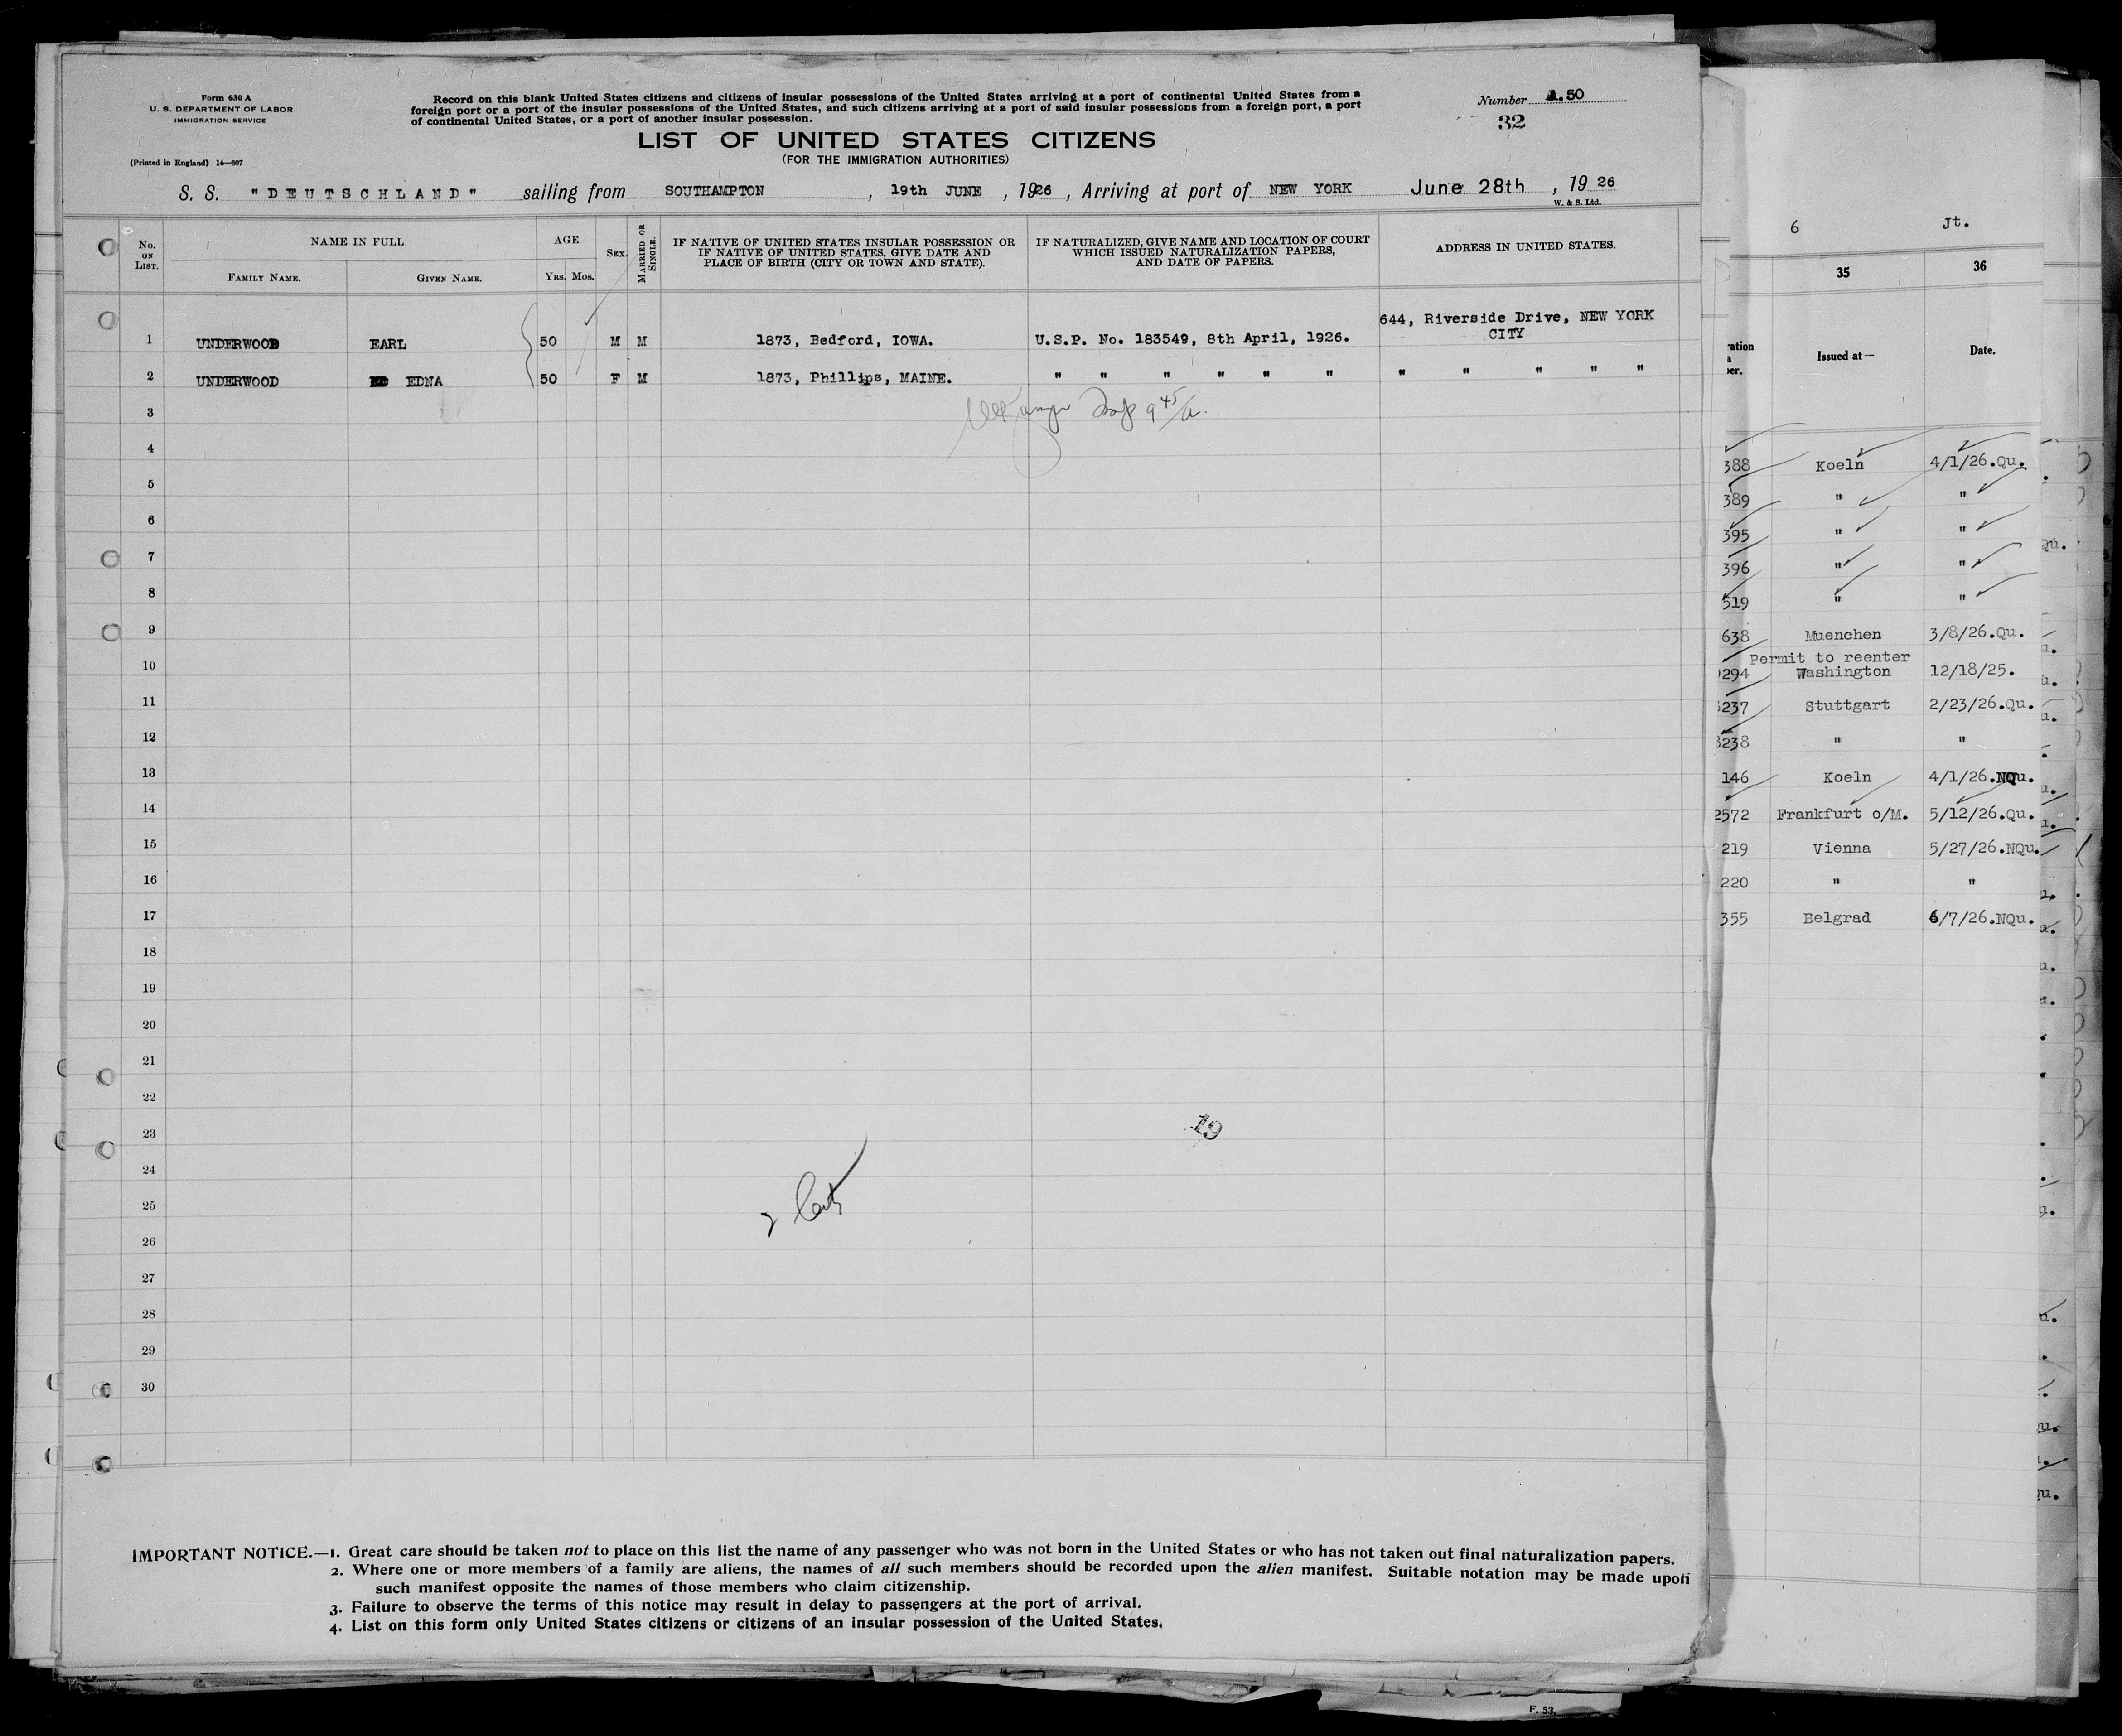 Form 630 A
U. S. DEPARTMENT OF LABOR
IMMIGRATION SERVICE
(Printed in England) 14—607
Record on this blank United States citizens and citizens of insular possessions of the United States arriving at a port of continental United States from a
foreign port or a port of the insular possessions of the United States, and such citizens arriving at a port of said insular possessions from a foreign port, a port
of continental United States, or a port of another insular possession.
Number A.50
32
LIST OF UNITED STATES CITIZENS
(FOR THE IMMIGRATION AUTHORITIES)
S. S. "DEUTSCHLAND" sailing from SOUTHAMPTON, 19th JUNE, 1926, Arriving at port of NEW YORK June 28th, 19 26
W. & S. Ltd.
No. ON LIST.
NAME IN FULL
FAMILY NAME.
GIVEN NAME.
AGE
Yrs. Mos.
SEX.
MARRIED OR SINGLE.
IF NATIVE OF UNITED STATES INSULAR POSSESSION OR
IF NATIVE OF UNITED STATES, GIVE DATE AND
PLACE OF BIRTH (CITY OR TOWN AND STATE).
IF NATURALIZED, GIVE NAME AND LOCATION OF COURT
WHICH ISSUED NATURALIZATION PAPERS,
AND DATE OF PAPERS.
ADDRESS IN UNITED STATES.
1 UNDERWOOD EARL 50 M M 1873, Bedford, IOWA. U.S.P. No. 183549, 8th April, 1926. 644, Riverside Drive, NEW YORK
CITY
2 UNDERWOOD EDNA 50 F M 1873, Phillips, MAINE. " " " " " " " " " " "
3
4
5
6
7
8
9
10
11
12
13
14
15
16
17
18
19
20
21
22
23
19
24
25
26
27
28
29
30
IMPORTANT NOTICE.—1. Great care should be taken not to place on this list the name of any passenger who was not born in the United States or who has not taken out final naturalization papers.
2. Where one or more members of a family are aliens, the names of all such members should be recorded upon the alien manifest. Suitable notation may be made upon
such manifest opposite the names of those members who claim citizenship.
3. Failure to observe the terms of this notice may result in delay to passengers at the port of arrival.
4. List on this form only United States citizens or citizens of an insular possession of the United States.
6 Jt.
35 36
Issued at— Date.
388 Koeln 4/1/26.Qu.
389 " "
395 " "
396 " "
519 " "
638 Muenchen 3/8/26.Qu.
Permit to reenter
294 Washington 12/18/25.
237 Stuttgart 2/23/26.Qu.
238 " "
146 Koeln 4/1/26.NQu.
2572 Frankfurt o/M. 5/12/26.Qu.
219 Vienna 5/27/26.NQu.
220 " "
355 Belgrad 6/7/26.NQu.
F. 53.